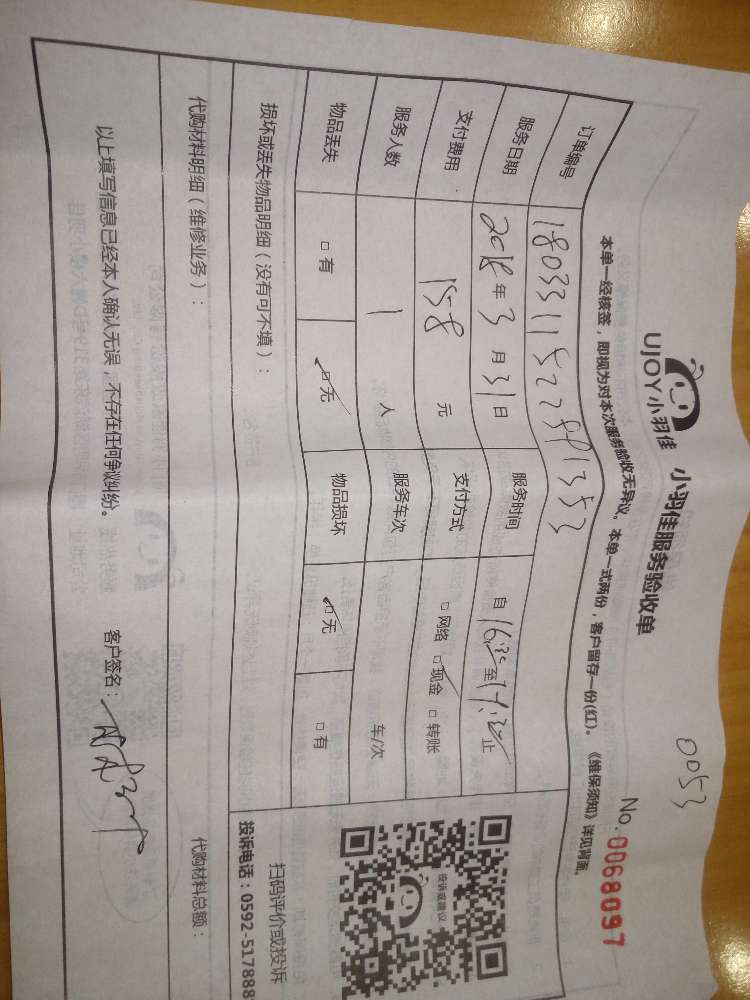 0053
UJOY小羽佳 小羽佳服务验收单
No. 0068097
本单一经核签，即视为对本次服务验收无异议。本单一式两份，客户留存一份(红)。《维保须知》详见背面。
订单编号
服务日期 2018年3月31日 服务时间 自 至 止
支付费用 158 元 支付方式 □网络 ☑现金 □转账
服务人数 1 人 服务车次 车/次
物品丢失 □有 ☑无 物品损坏 ☑无 □有
损坏或丢失物品明细（没有可不填）：
投诉或建议
扫码评价或投诉
投诉电话：0592-517888
代购材料明细（维修业务）： 代购材料总额：
以上填写信息已经本人确认无误，不存在任何争议纠纷。 客户签名：